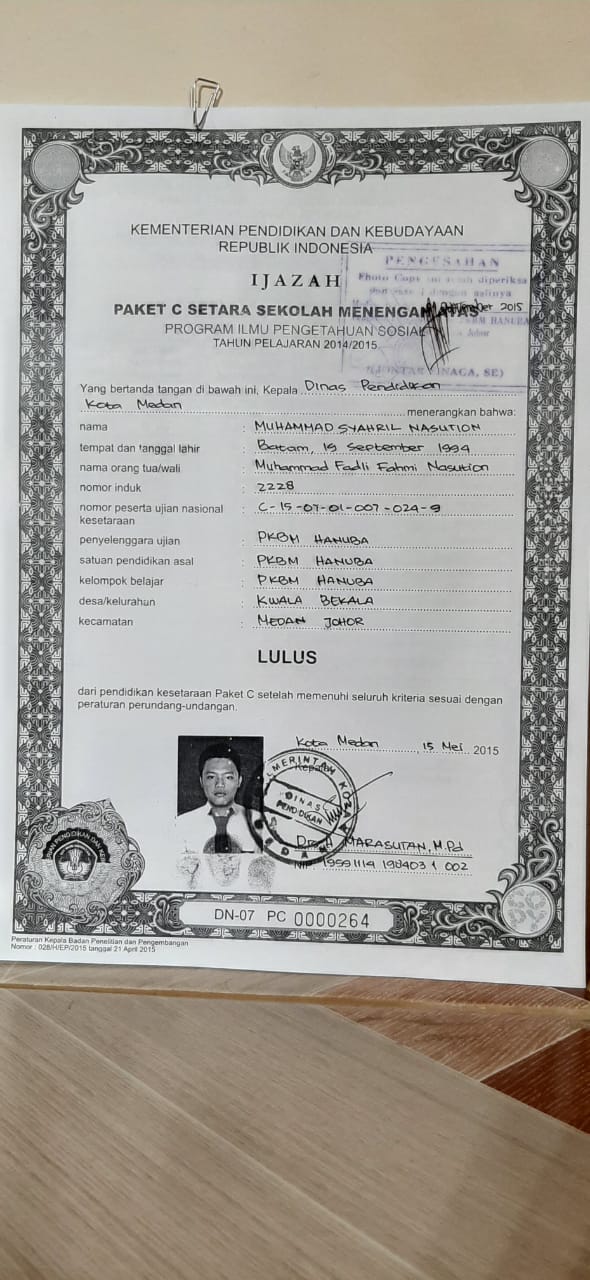 KEMENTERIAN PENDIDIKAN DAN KEBUDAYAAN
REPUBLIK INDONESIA
IJAZAH
PENGESAHAN
Photo Copy ini telah diperiksa
aslinya
2015
PKBM HANUBA
Johor
PAKET C SETARA SEKOLAH MENENGAH ATAS
PROGRAM ILMU PENGETAHUAN SOSIAL
TAHUN PELAJARAN 2014/2015
NAGA, SE)
Yang bertanda tangan di bawah ini, Kepala Dinas Pendidikan
Kota Medan menerangkan bahwa:
nama : MUHAMMAD SYAHRIL NASUTION
tempat dan tanggal lahir : Batam, 19 September 1994
nama orang tua/wali : Muhammad Fadli Fahmi Nasution
nomor induk : 2228
nomor peserta ujian nasional : C-15-07-01-007-024-9
kesetaraan
penyelenggara ujian : PKBM HANUBA
satuan pendidikan asal : PKBM HANUBA
kelompok belajar : PKBM HANUBA
desa/kelurahan : KWALA BEKALA
kecamatan : MEDAN JOHOR
LULUS
dari pendidikan kesetaraan Paket C setelah memenuhi seluruh kriteria sesuai dengan
peraturan perundang-undangan.
Kota Medan, 15 Mei 2015
Kepala
PEMERINTAH KOTA
DINAS
PENDIDIKAN
MEDAN
MARASUTAN, M.Pd
NIP 19591114 198403 1 002
DN-07 PC 0000264
Peraturan Kepala Badan Penelitian dan Pengembangan
Nomor : 028/H/EP/2015 tanggal 21 April 2015